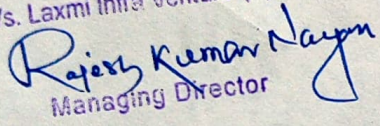 /s. Laxmi Infra Ventu
Rajesh Kumar Nayan
Managing Director